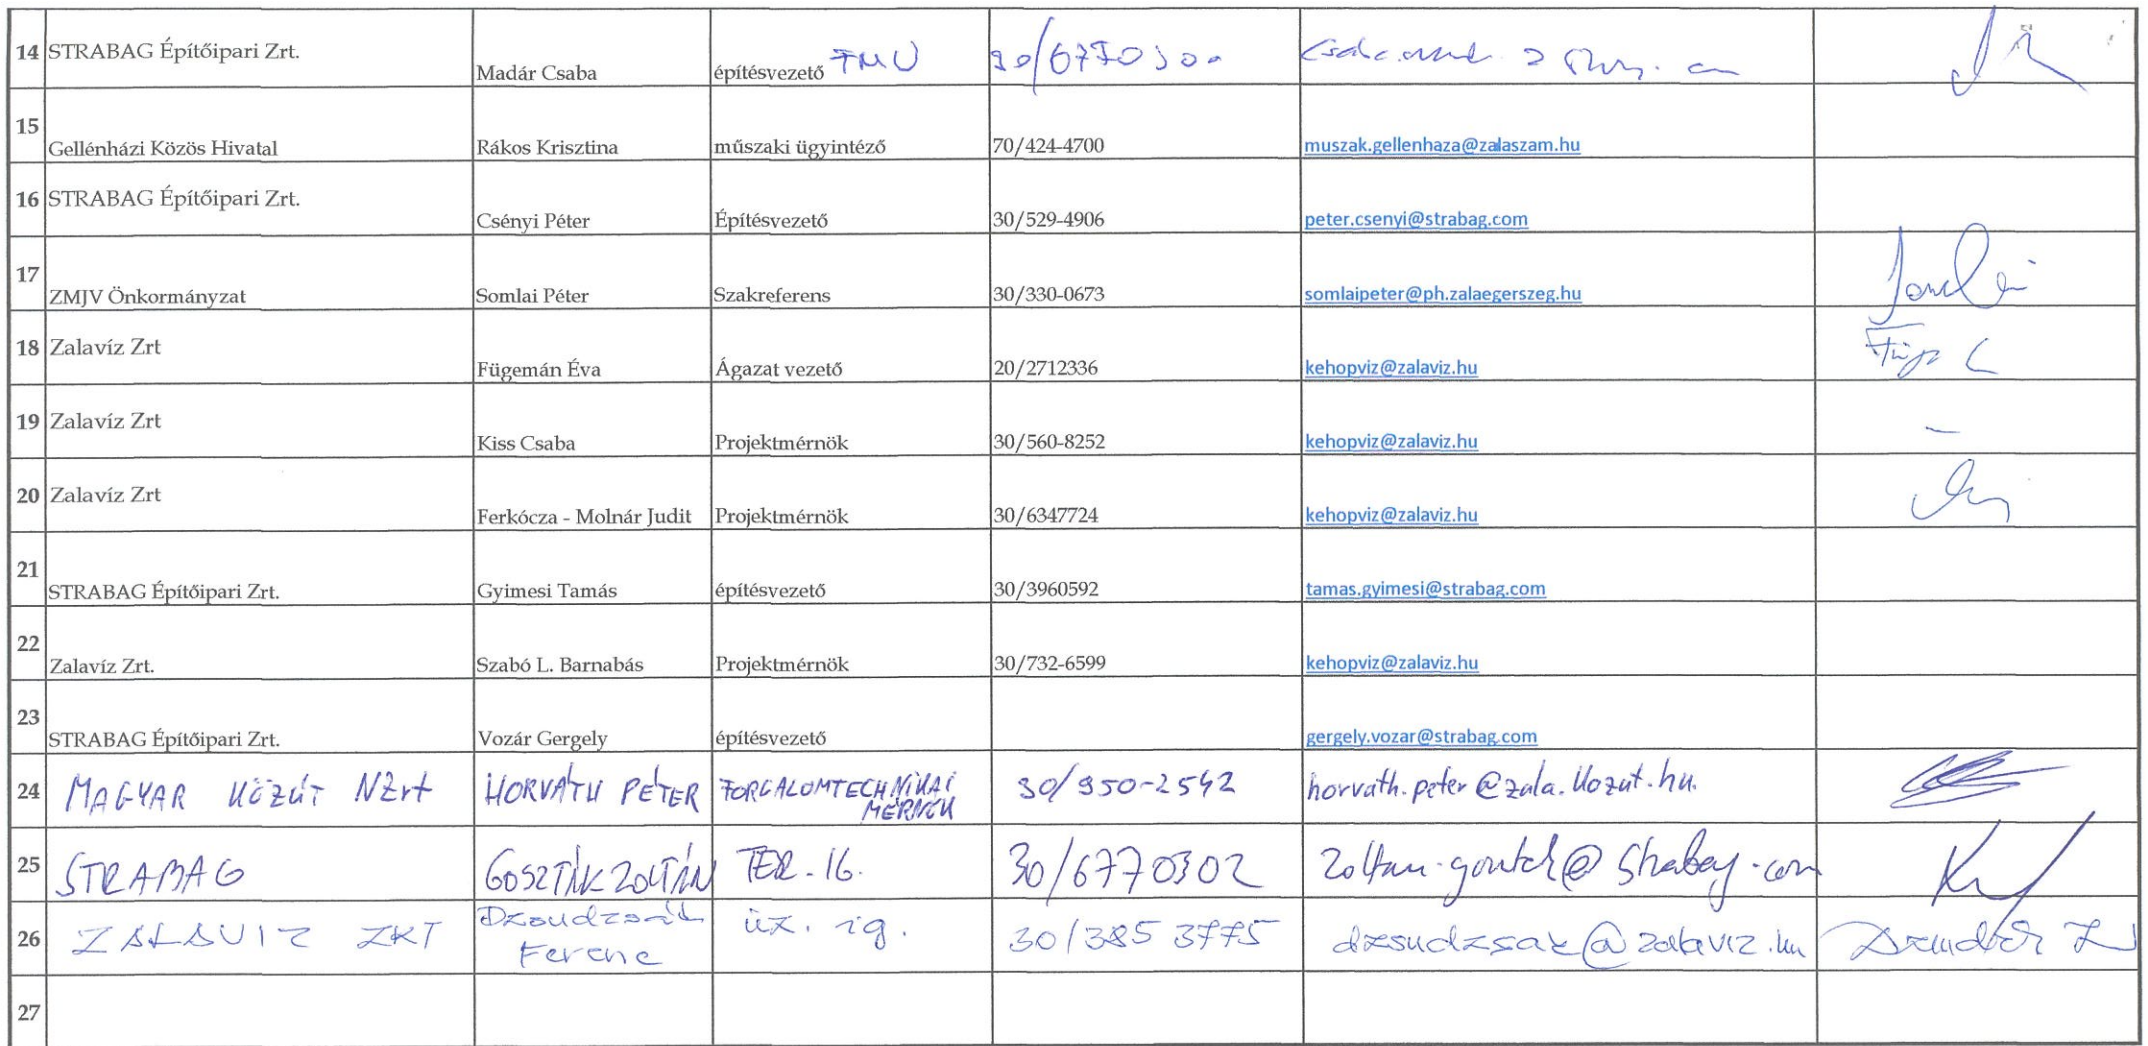 14 STRABAG Építőipari Zrt. Madár Csaba építésvezető TMU
15 Gellénházi Közös Hivatal Rákos Krisztina műszaki ügyintéző 70/424-4700 muszak.gellenhaza@zalaszam.hu
16 STRABAG Építőipari Zrt. Csényi Péter Építésvezető 30/529-4906 peter.csenyi@strabag.com
17 ZMJV Önkormányzat Somlai Péter Szakreferens 30/330-0673 somlaipeter@ph.zalaegerszeg.hu
18 Zalavíz Zrt Fügemán Éva Ágazat vezető 20/2712336 kehopviz@zalaviz.hu
19 Zalavíz Zrt Kiss Csaba Projektmérnök 30/560-8252 kehopviz@zalaviz.hu
20 Zalavíz Zrt Ferkócza - Molnár Judit Projektmérnök 30/6347724 kehopviz@zalaviz.hu
21 STRABAG Építőipari Zrt. Gyimesi Tamás építésvezető 30/3960592 tamas.gyimesi@strabag.com
22 Zalavíz Zrt. Szabó L. Barnabás Projektmérnök 30/732-6599 kehopviz@zalaviz.hu
23 STRABAG Építőipari Zrt. Vozár Gergely építésvezető gergely.vozar@strabag.com
24 MAGYAR KÖZÚT NZrt HORVÁTH PÉTER FORGALOMTECHNIKAI 30/950-2542 horvath.peter@zala.kozut.hu.
MÉRNÖK
25 STRABAG GOSZTÁK ZOLTÁN TER. IG. 30/6770302
26 ZALAVIZ ZRT Dzsudzsák üz. ig. 30/385 3775 dzsudzsak@zalaviz.hu
Ferenc
27